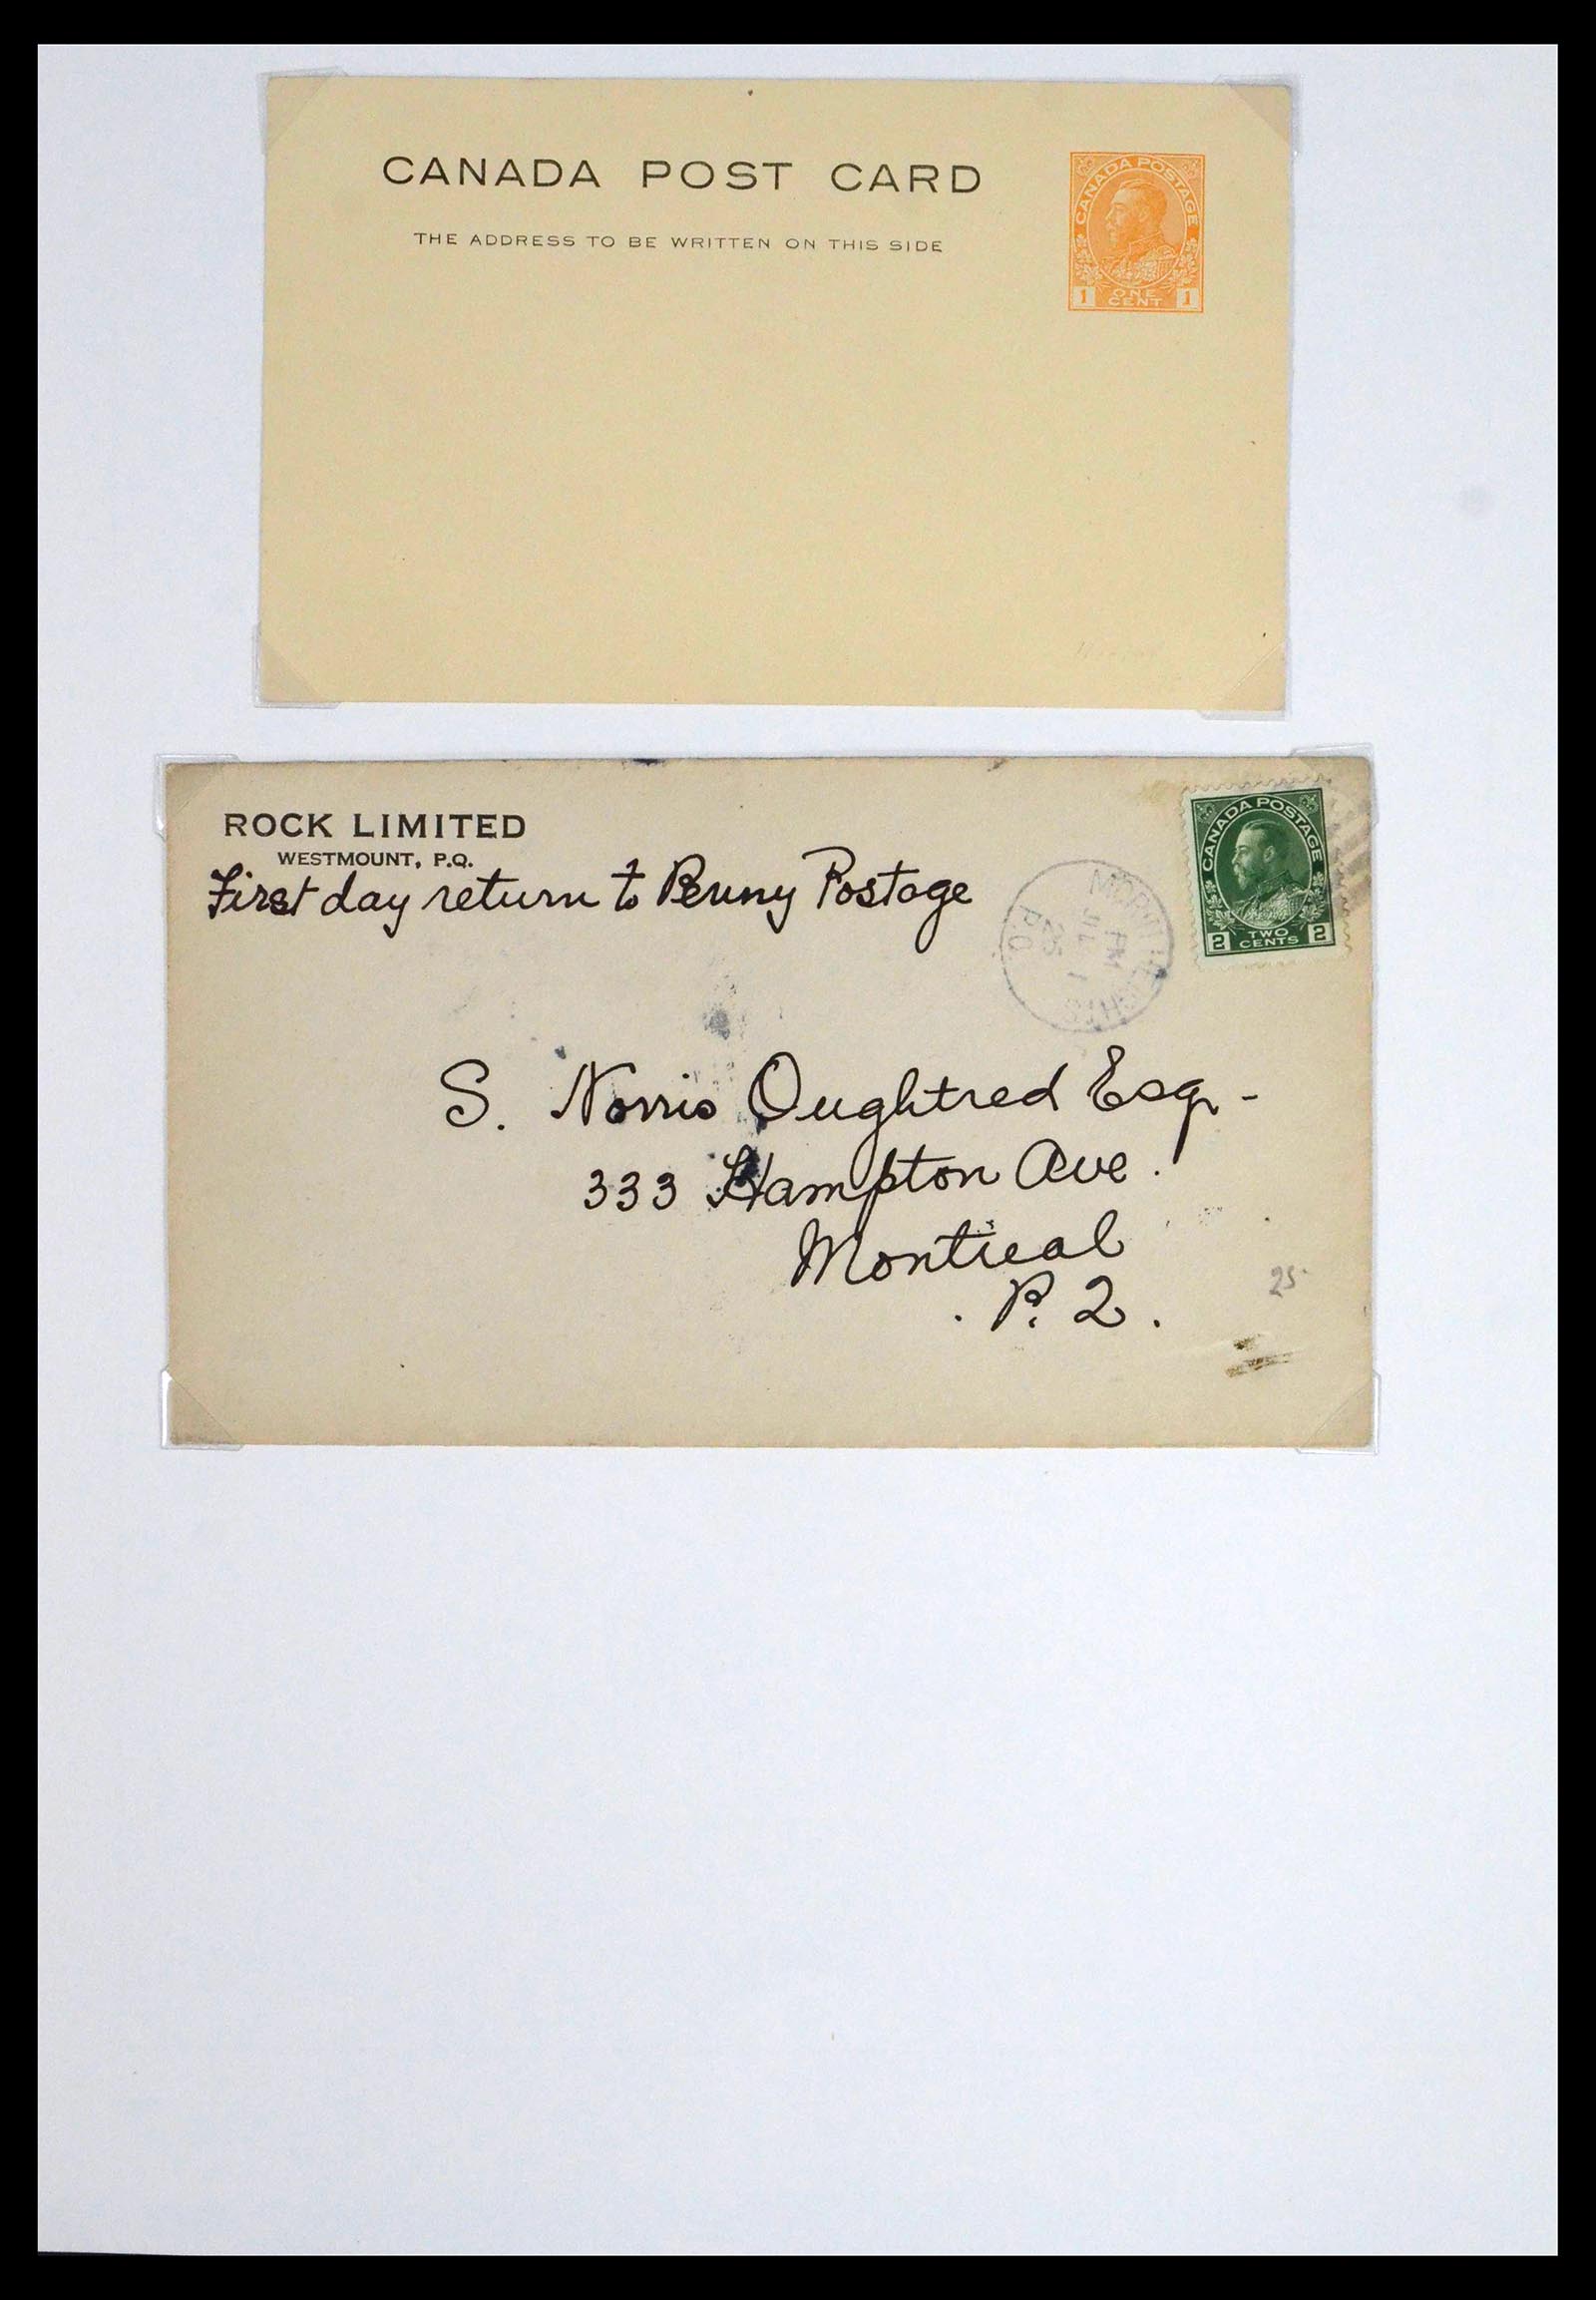 CANADA POST CARD
THE ADDRESS TO BE WRITTEN ON THIS SIDE
CANADA POSTAGE
1 ONE CENT 1
ROCK LIMITED
WESTMOUNT, P.Q.
First day return to Penny Postage
CANADA POSTAGE
2 TWO CENTS 2
PM
JUL 1
26
P.Q.
S. Norris Oughtred Esq -
333 Hampton Ave.
Montreal
. P. Q.
25